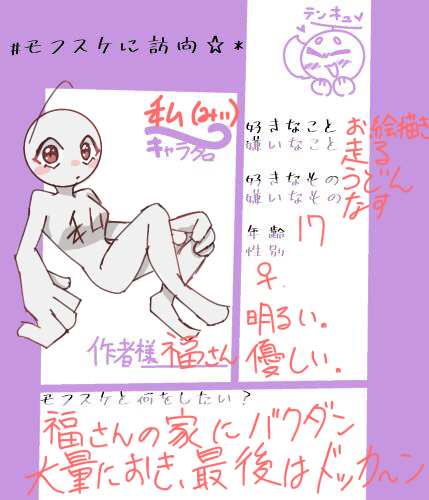 テンキュ✓
#モフスケに訪向☆*
私(みい)
キャラ名
好きなこと お絵描き
嫌いなこと 走る
好きなもの うどん
嫌いなもの なす
年齢 17
性別
♀.
明るい。
優しい。
私
作者様 福さん
モフスケと何をしたい?
福さんの家にバクダン
大量におき、最後はドッカ〜ン